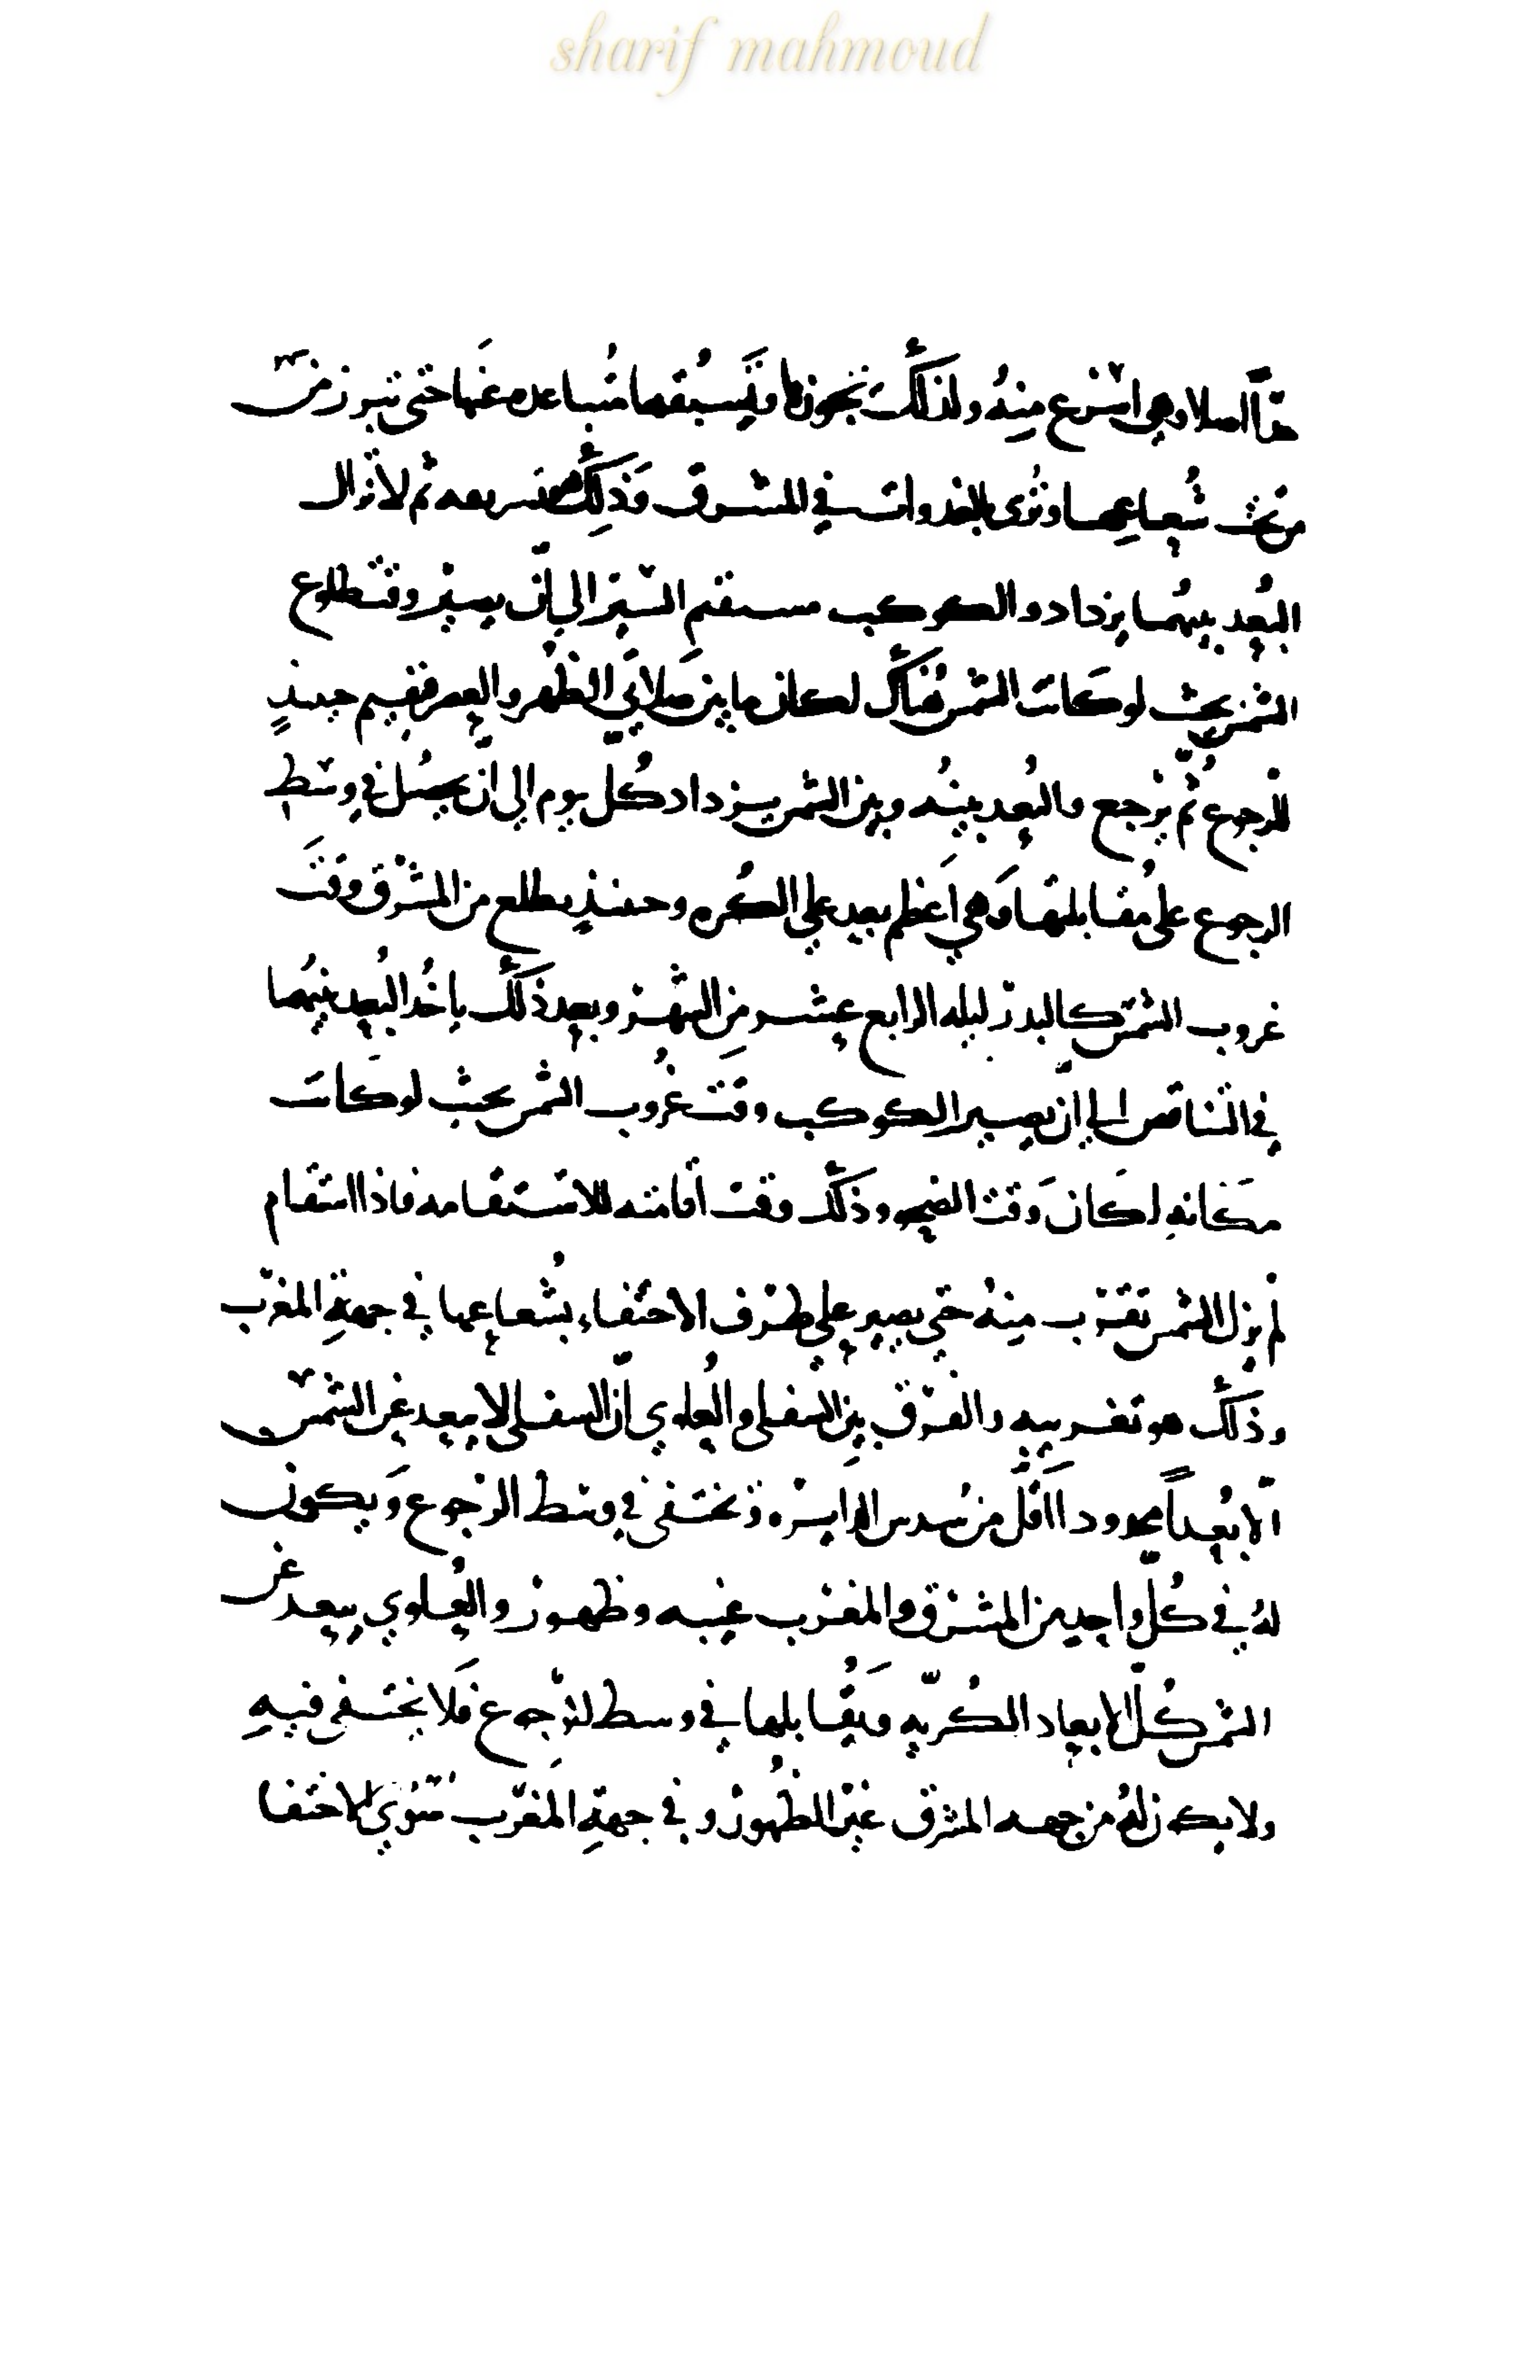 sharif mahmoud
وهي اسرع منه ولذلك تجوزها وتسبقها متباعده عنها حتى تبرز من
تحت شعاعها وترى بالغدوات في المشرق وذلك ثم لا تزال
البعد بينهما يزداد والكوكب مستقيم السير الي ان يصير وقت طلوع
الشمس بحيث لو كانت الشمس هناك لكان ما بين صلاتي الظهر والعصر فيقيم حينيذ
للرجوع ثم يرجع والبعد بينه وبين الشمس يزداد كل يوم الى ان يحصل في وسط
الرجوع على مقابلتها وهي اعظم بعد علي الكره وحينيذ يطلع من المشرق وقت
غروب الشمس كالبدر ليله الرابع عشر من الشهر وبعد ذلك ياخذ البعد بينهما
في التناقص الي ان يصير الكوكب وقت غروب الشمس بحيث لو كانت
مكانه لكان وقت الضحى وذلك وقت اقامته للاستقامه فاذا استقام
لم يزل الشمس تقترب منه حتي يصير علي طرف الاختفاء بشعاعها في جهة المغرب
وذلك هو تغريبه والفرق بين السفلى والعلوي ان السفلى لا يبعد عن الشمس
الا بعدا محدودا اقل من سدس الدايره وتختفى في وسط الرجوع ويكون
له في كل واحد من المشرق والمغرب غيبه وظهور والعلوي يبعد عن
الشمس كل الابعاد الكريه ويقابلها في وسط الرجوع فلا يختفى فيه
ولا يكون له من جهه المشرق غير الظهور وفي جهة المغرب سوي الاختفا